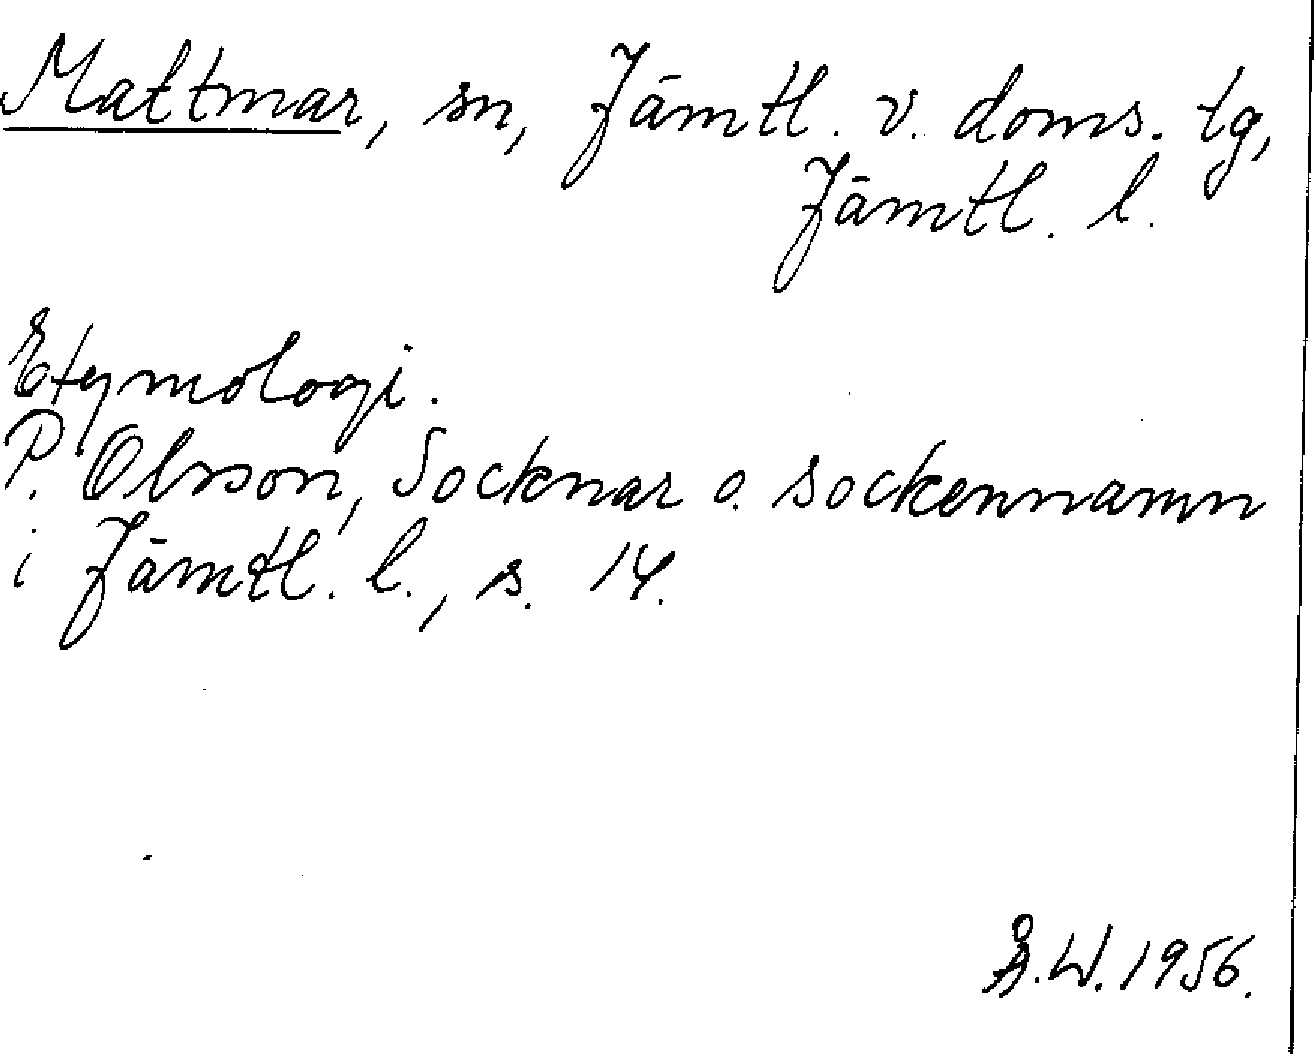 Mattmar, sn, Jämtl. v. doms. tg,
Jämtl. l.
Etymologi.
P. Olsson, Socknar o. sockennamn
i Jämtl. l., s. 14.
Å.W. 1956.